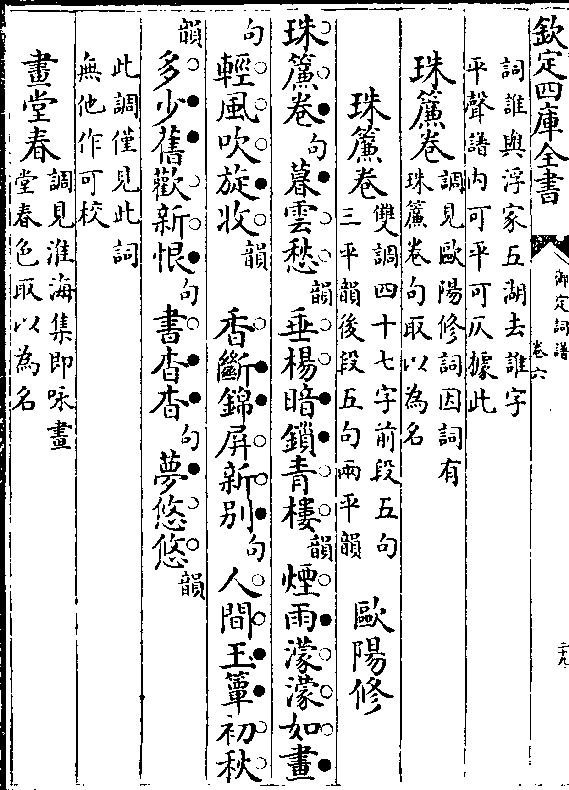 欽定四庫全書
御定詞譜
卷六
二十九
詞誰與浮家五湖去誰字
平聲譜内可平可仄據此
珠簾卷
調見歐陽修詞因詞有
珠簾卷句取以為名
珠簾卷
雙調四十七字前段五句
三平韻後段五句兩平韻
歐陽修
珠簾卷句暮雲愁韻垂楊暗鎖青樓韻煙雨濛濛如畫
句輕風吹旋收韻 香斷錦屏新别句人間玉簟初秋
韻多少舊歡新恨句書杳杳句夢悠悠韻
此調僅見此詞
無他作可校
畫堂春
調見淮海集即咏畫
堂春色取以為名